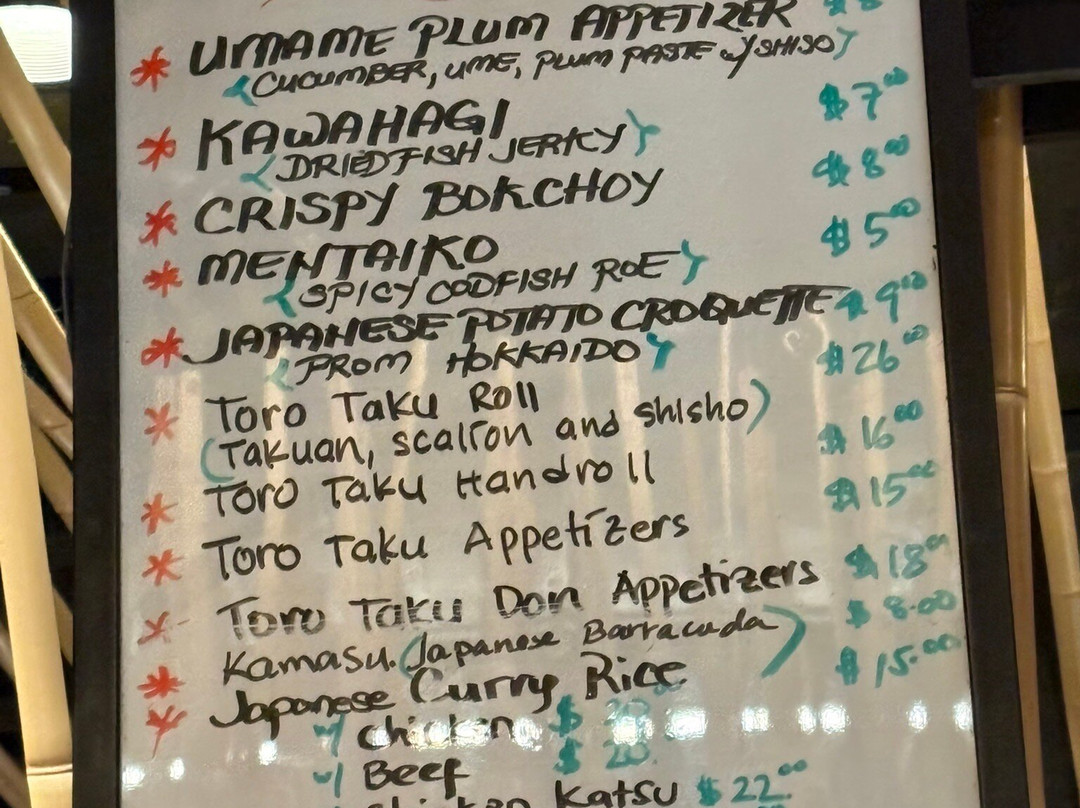 * UMAME PLUM APPETIZER $8
(CUCUMBER, UME, PLUM PASTE w/ SHISO)
* KAWAHAGI $7.00
(DRIED FISH JERKY)
* CRISPY BOKCHOY $8.00
* MENTAIKO $5.00
(SPICY CODFISH ROE)
* JAPANESE POTATO CROQUETTE $9.00
(FROM HOKKAIDO)
* Toro Taku Roll $26.00
(Takuan, scallion and shisho)
* Toro Taku Handroll $16.00
* Toro Taku Appetizers $15.00
* Toro Taku Don Appetizers $18.00
* Kamasu. (Japanese Barracuda) $8.00
* Japanese Curry Rice $15.00
w/ chicken $
w/ Beef $20.
Chicken Katsu $22.00